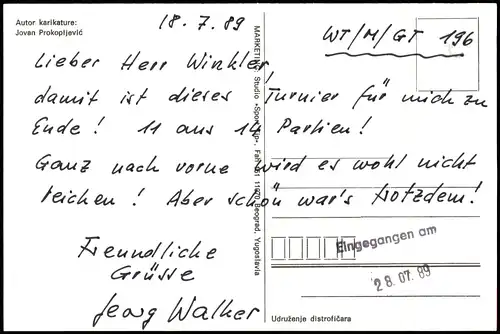 Autor karikature:
Jovan Prokopljević
18.7.89
WT/M/GT 196
Lieber Herr Winkler!
damit ist dieses Turnier für mich zu
Ende! 11 aus 14 Partien!
Ganz nach vorne wird es wohl nicht
reichen! Aber schön war's trotzdem!
Freundliche
Grüsse
Georg Walker
Eingegangen am
28.07.89
Udruženje distrofičara